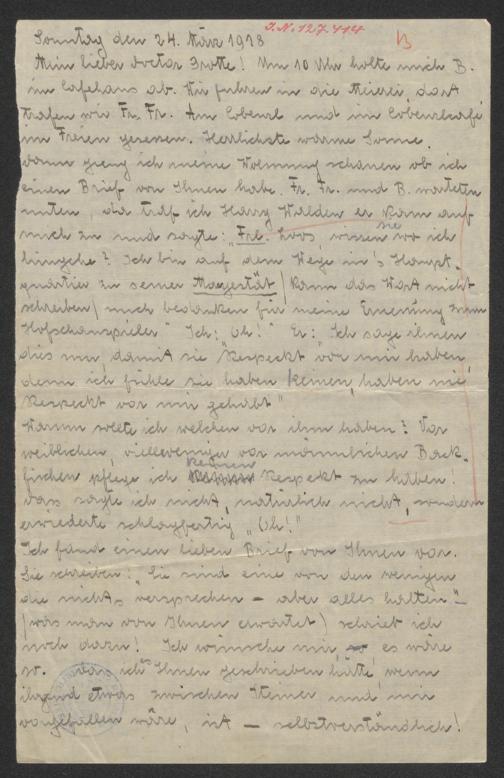 J.N. 127.414
B
Sonntag den 24. März 1918
Mein lieber Doctor Trotte! Um 10 Uhr holte mich B.
im Cafehaus ab. Wir fuhren in die Meierei, dort
trafen wir Fr. Fr. Am Cobenzl und im Cobenzlcafé
im Freien gesessen. Herrlichste warme Sonne.
dann gieng ich meine Wohnung schauen ob ich
einen Brief von Ihnen habe. Fr. Fr. und B. warteten
unten, da traf ich Harry Walden er kam auf
mich zu und sagte: "Frl. Loos, wissen sie wo ich
hingehe? Ich bin auf dem Wege in's Haupt-
quartier zu seiner Majestät (kann das Wort nicht
schreiben) mich bedanken für meine Ernennung zum
Hofschauspieler" Ich: "Oh!" Er: "Ich sage ihnen
dies nur, damit sie "Respeckt" vor mir haben,
denn ich fühle sie haben keinen, haben nie
Respeckt vor mir gehabt"
Warum sollte ich welchen vor ihm haben? Vor
weiblichen, vielweniger vor männlichen Back-
fischen pflege ich keinen Respekt zu haben!
Das sagte ich nicht, natürlich nicht, sondern
erwiederte schlagfertig "Oh!"
Ich fand einen lieben Brief von Ihnen vor.
Sie schreiben: "Sie sind eine von den wenigen
die nichts versprechen – aber alles halten" –
(was man von Ihnen erwartet) schrieb ich
noch dazu! Ich wünsche mir es wäre
so. dass ich's Ihnen geschrieben hätte wenn
irgend etwas zwischen Steiner und mir
vorgefallen wäre, ist – selbstverständlich!